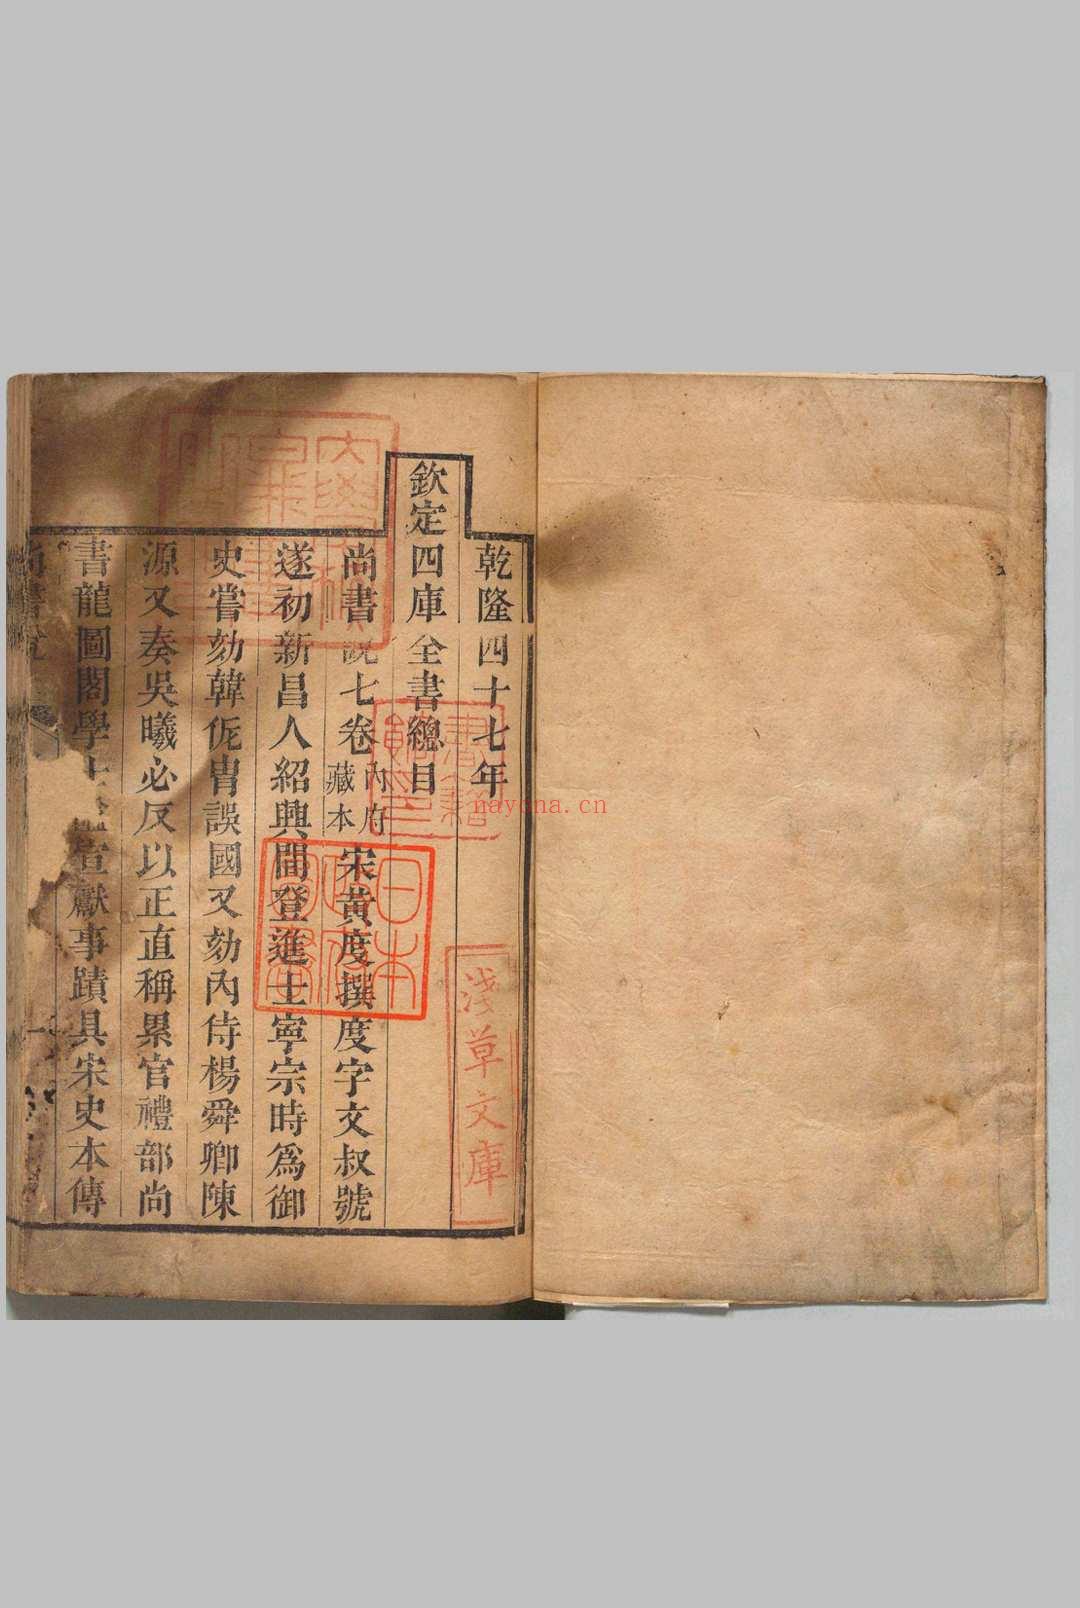 乾隆四十七年
欽定四庫全書總目
尚書說七卷內府藏本宋黃度撰度字文叔號
遂初新昌人紹興間登進士寧宗時爲御
史嘗劾韓侂胄誤國又劾內侍楊舜卿陳
源又奏吳曦必反以正直稱累官禮部尚
書龍圖閣學士宣獻事蹟具宋史本傳
尚書說
淺草文庫
日本政府圖書
書籍館印
nayona.cn